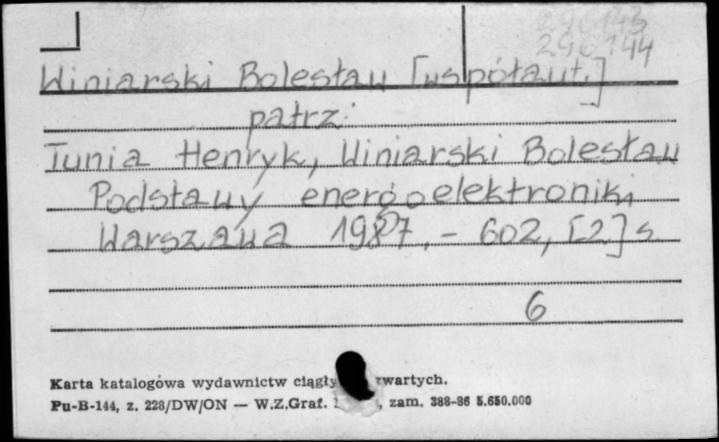 296143
296144
Winiarski Bolesław [współaut.]
patrz:
Tunia Henryk, Winiarski Bolesław
Podstawy energoelektroniki
Warszawa 1987. - 602, [2] s.
6
Karta katalogowa wydawnictw ciągły zwartych.
Pu-B-144, z. 228/DW/ON — W.Z.Graf. zam. 388-86 5.650.000